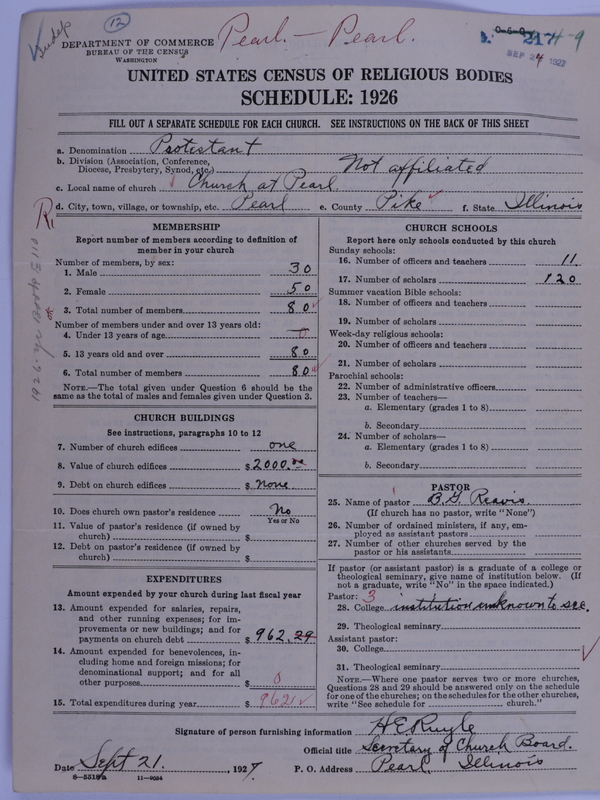 Indep
12
Pearl. - Pearl.
217 H-9
SEP 24 1927
DEPARTMENT OF COMMERCE
BUREAU OF THE CENSUS
WASHINGTON
UNITED STATES CENSUS OF RELIGIOUS BODIES
SCHEDULE: 1926
FILL OUT A SEPARATE SCHEDULE FOR EACH CHURCH. SEE INSTRUCTIONS ON THE BACK OF THIS SHEET
a. Denomination Protestant
b. Division (Association, Conference, Diocese, Presbytery, Synod, etc.) Not affiliated
c. Local name of church Church at Pearl
d. City, town, village, or township, etc. Pearl e. County Pike f. State Illinois
MEMBERSHIP
Report number of members according to definition of
member in your church
Number of members, by sex:
1. Male 30
2. Female 50
3. Total number of members 80
Number of members under and over 13 years old:
4. Under 13 years of age 0
5. 13 years old and over 80
6. Total number of members 80
NOTE.—The total given under Question 6 should be
same as the total of males and females given under Question 3.
CHURCH BUILDINGS
See instructions, paragraphs 10 to 12
7. Number of church edifices one
8. Value of church edifices $ 2000.
9. Debt on church edifices $ none
10. Does church own pastor's residence No
Yes or No
11. Value of pastor's residence (if owned by
church) $
12. Debt on pastor's residence (if owned by
church) $
EXPENDITURES
Amount expended by your church during last fiscal year
13. Amount expended for salaries, repairs,
and other running expenses; for im-
provements or new buildings; and for
payments on church debt $ 962.29
14. Amount expended for benevolences, in-
cluding home and foreign missions; for
denominational support; and for all
other purposes $ 0
15. Total expenditures during year $ 962
CHURCH SCHOOLS
Report here only schools conducted by this church
Sunday schools:
16. Number of officers and teachers 11.
17. Number of scholars 120
Summer vacation Bible schools:
18. Number of officers and teachers
19. Number of scholars
Week-day religious schools:
20. Number of officers and teachers
21. Number of scholars
Parochial schools:
22. Number of administrative officers
23. Number of teachers—
a. Elementary (grades 1 to 8)
b. Secondary
24. Number of scholars—
a. Elementary (grades 1 to 8)
b. Secondary
PASTOR
25. Name of pastor B.G. Reavis.
(If church has no pastor, write "None")
26. Number of ordained ministers, if any, em-
ployed as assistant pastors
27. Number of other churches served by the
pastor or his assistants
If pastor (or assistant pastor) is a graduate of a college or
theological seminary, give name of institution below. (If
not a graduate, write "No" in the space indicated.)
Pastor: 3
28. College institution unknown to sec.
29. Theological seminary
Assistant pastor:
30. College
31. Theological seminary
NOTE.—Where one pastor serves two or more churches,
Questions 28 and 29 should be answered only on the schedule
for one of the churches; on the schedules for the other churches,
write "See schedule for church."
Signature of person furnishing information H E Ruyle
Official title Secretary of Church Board.
Date Sept 21. , 1927. P. O. Address Pearl Illinois
6-5518a 11-9034